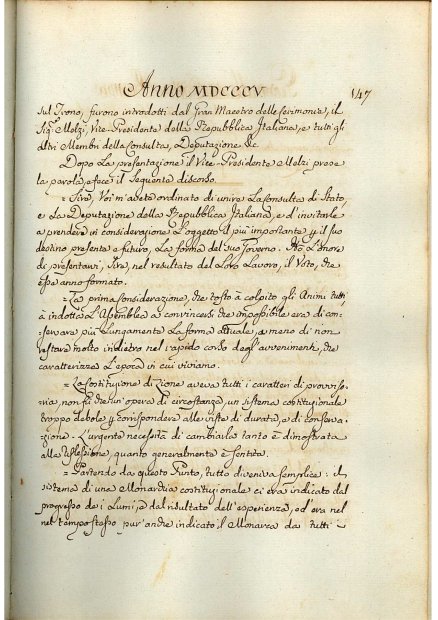 Anno MDCCCV 147
sul Trono, furono introdotti dal Gran Maestro delle Cerimonie, il
Sig.r Melzi, Vice-Presidente della Repubblica Italiana, e tutti gli
altri Membri della Consulta, Deputazione &c.
Dopo la presentazione il Vice-Presidente Melzi prese
la parola, e fece il seguente discorso.
= Sire, Voi m'avete ordinato di unire la Consulta di Stato,
e la Deputazione della Repubblica Italiana, e d'invitarle
a prendere in considerazione l'oggetto il più importante p il suo
destino presente e futuro, la forma del suo Governo. Ho l'Onore
di presentarvi, Sire, nel resultato del loro lavoro, il Voto, che
esse anno formato.
= La prima considerazione, che tosto à colpito gli Animi tutti,
à indotta l'Assemblea a convincersi che impossibile era di con-
servare più lungamente la forma attuale, a meno di non
restare molto indietro nel rapido corso degl'avvenimenti, che
caratterizza l'epoca in cui viviamo.
= La Costituzione di Lione aveva tutti i caratteri di provviso-
ria, non fu che un'opera di circostanza, un sistema costituzionale
troppo debole p corrispondere alle viste di durata, e di conserva-
zione. L'urgente necessità di cambiarla tanto è dimostrata
alla riflessione, quanto generalmente è sentita.
= Partendo da questo Punto, tutto diveniva semplice: il
sistema di una Monarchia costituzionale ci era indicato dal
progresso dei Lumi, e dal risultato dell'esperienza, ed era nel
nel tempo stesso pur'anche indicato il Monarca da tutti i